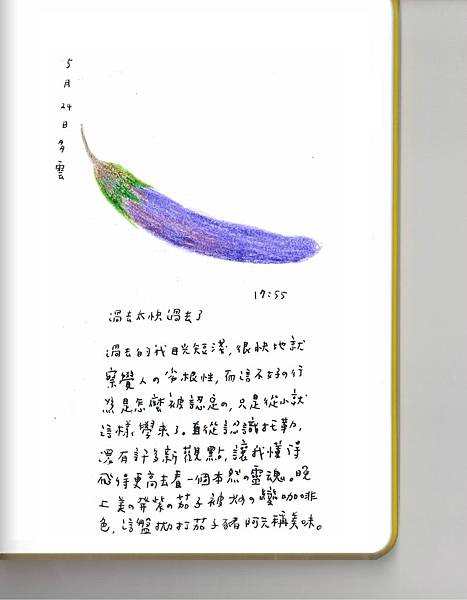 5月24日多雲
17:55
過去太快過去了
過去的我目光短淺,很快地就
察覺人の劣根性,而這不好の行
為是怎麼被認定の,只是從小就
這樣學來了。自從認識托勒,
還有許多新觀點,讓我懂得
飛得更高去看一個本然の靈魂。晚
上美の帶紫の茄子被炒の變咖啡
色,這盤拋打茄子豬阿元稱美味。